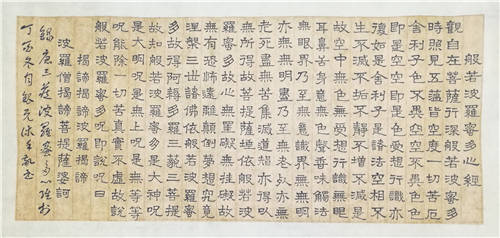 般若波羅蜜多心經
觀自在菩薩行深般若波羅蜜多
時照見五蘊皆空度一切苦厄
舍利子色不異空空不異色色
即是空空即是色受想行識亦
復如是舍利子是諸法空相不
生不滅不垢不淨不增不減是
故空中無色無受想行識無眼
耳鼻舌身意無色聲香味觸法
無眼界乃至無意識界無無明
亦無無明盡乃至無老死亦無
老死盡無苦集滅道無智亦無得以
無所得故菩提薩埵依般若波
羅蜜多故心無罣礙無罣礙故
無有恐怖遠離顛倒夢想究竟
涅槃三世諸佛依般若波羅蜜
多故得阿耨多羅三藐三菩提
故知般若波羅蜜多是大神呪
是大明呪是無上呪是無等等
呪能除一切苦真實不虛故說
般若波羅蜜多呪即說呪曰
揭諦揭諦波羅揭諦
波羅僧揭諦菩提薩婆訶
唐三藏波羅蜜多心經
冬月